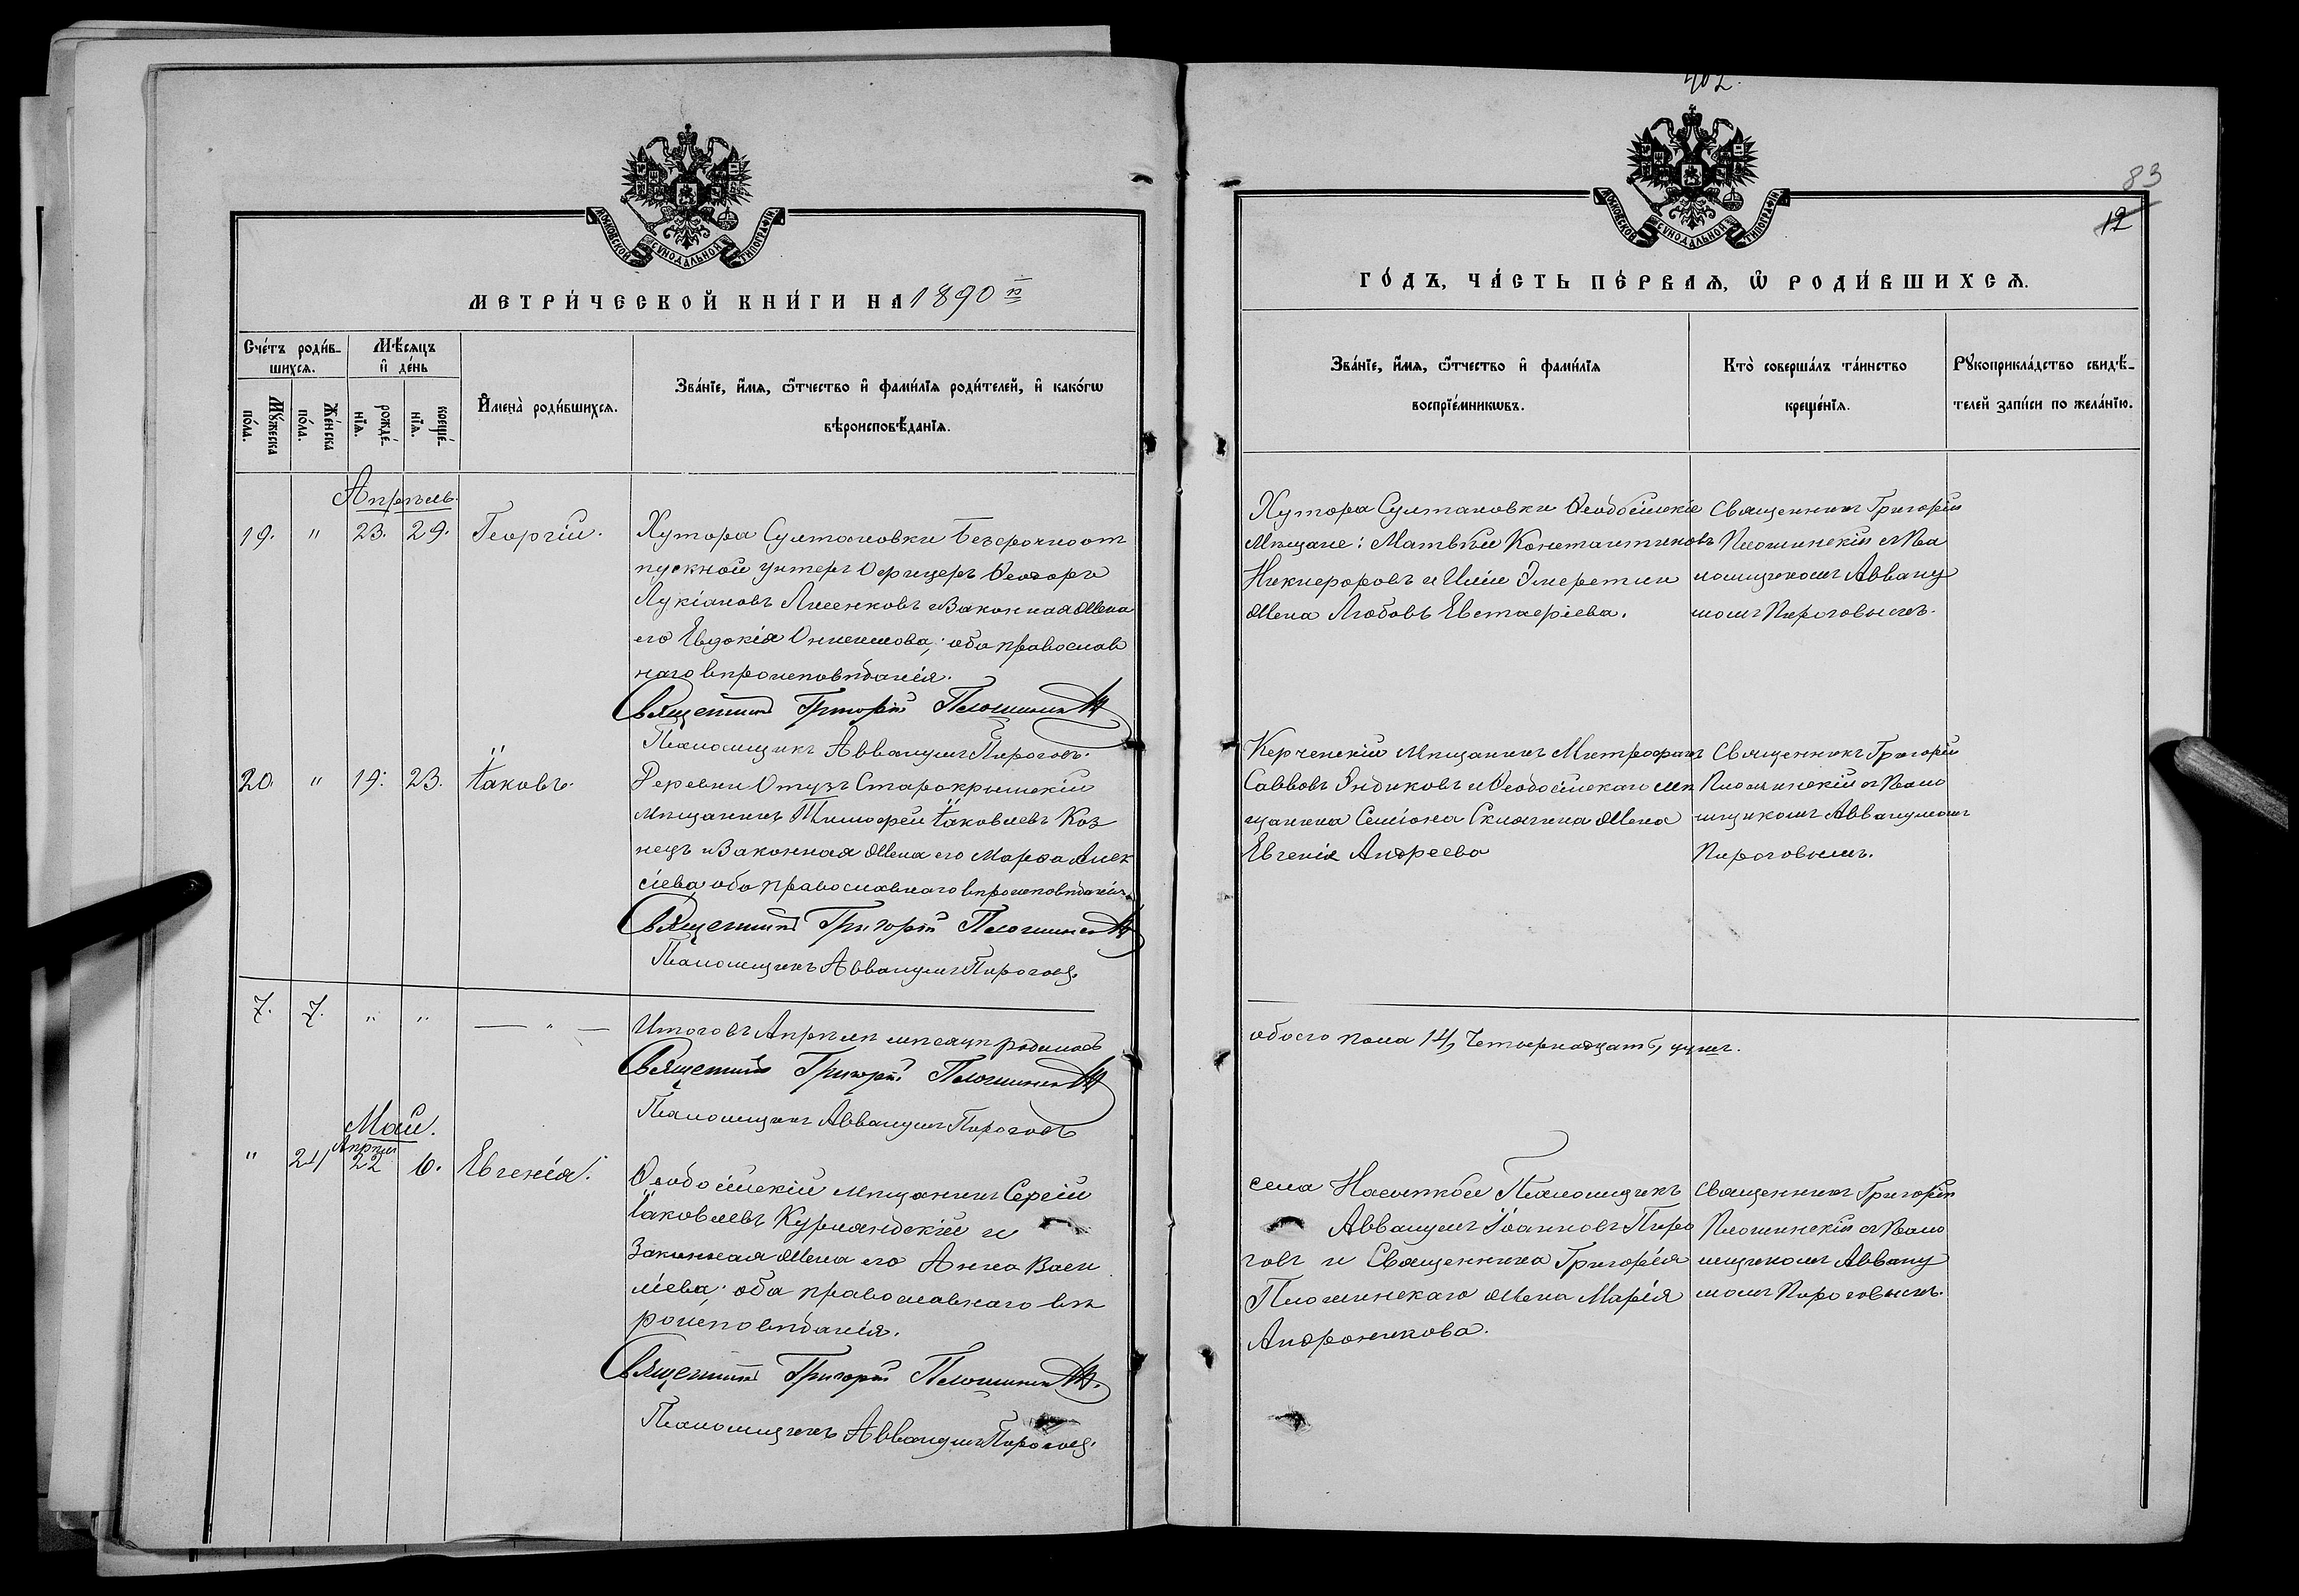 МОСКОВСКОЙ СУНОДАЛЬНОЙ ТИПОГРАФІИ.
МЕТРИ́ЧЕСКОЙ КНИ́ГИ НА 1890 й
Сче́тъ роди́в-
шихсѧ.
Мѣ́сѧцъ
и҆ де́нь
Мꙋ́жеска
по́ла.
Же́нска
по́ла.
рожде́-
нїѧ.
креще́-
нїѧ.
И҆мена̀ роди́вшихсѧ.
Зва́нїе, и҆́мѧ, ѻ҆́тчество и҆ фами́лїѧ роди́телей, и҆ како́гѡ
вѣроисповѣ́данїѧ.
Апрѣль.
19. " 23. 29. Георгій.
Хутора Султановки безсрочноот
пускной унтеръ Офицеръ Ѳеодоръ
Лукіановъ Лисенковъ и Законная жена
его Евдокія Онисимова; оба православ
наго вѣроисповѣданія.
Священникъ Григорій Плошинскій
Псаломщикъ Аввакумъ Пироговъ.
20. " 19. 23. Іаковъ.
Деревни Отузъ Старокрымскій
мѣщанинъ Тимофей Іаковлевъ Коз
нецъ и Законная жена его Марѳа Алек
сіева, оба православнаго вѣроисповѣданія.
Священникъ Григорій Плошинскій
Псаломщикъ Аввакумъ Пироговъ
7. 7. " " — " —
Итого въ Апрѣлѣ мѣсяцѣ родилось
Священникъ Григорій Плошинскій
Псаломщикъ Аввакумъ Пироговъ
Май.
Апрѣля
" 21 22 6. Евгенія.
Ѳеодосійскій мѣщанинъ Сергій
Іаковлевъ Курляндскій и
Законная жена его Анна Васи
ліева; оба православнаго вѣ
роисповѣданія.
Священникъ Григорій Плошинскій.
Псаломщикъ Аввакумъ Пироговъ.
402.
83
12
МОСКОВСКОЙ СУНОДАЛЬНОЙ ТИПОГРАФІИ.
ГО́ДЪ, ЧА́СТЬ ПЕ́РВАѦ, Ѡ҆ РОДИ́ВШИХСѦ.
Зва́нїе, и҆́мѧ, ѻ҆́тчество и҆ фами́лїѧ
воспрїе́мникѡвъ.
Кто̀ соверша́лъ та́инство
креще́нїѧ.
Рꙋкоприкла́дство свидѣ́-
телей за́писи по жела́нїю.
Хутора Султановки Ѳеодосійскіе
Мѣщане: Матвѣй Константиновъ
Никифоровъ и Иліи Эмеретли
жена Любовь Евстафіева.
Священникъ Григорій
Плошинскій съ Пса
ломщикомъ Авваку
момъ Пироговымъ.
Керченскій мѣщанинъ Митрофанъ
Саввовъ Яндиковъ и Ѳеодосійскаго мѣ
щанина Семіона Склягина жена
Евгенія Андреева
Священникъ Григорій
Плошинскій съ Псало
мщикомъ Аввакумомъ
Пироговымъ.
обоего пола 14, Четырнадцать, душъ.
села Насыпкой Псаломщикъ
Аввакумъ Іоанновъ Пиро
говъ и Священника Григорія
Плошинскаго жена Марія
Андроникова.
Священникъ Григорій
Плошинскій съ Псало
мщикомъ Авваку
момъ Пироговымъ.